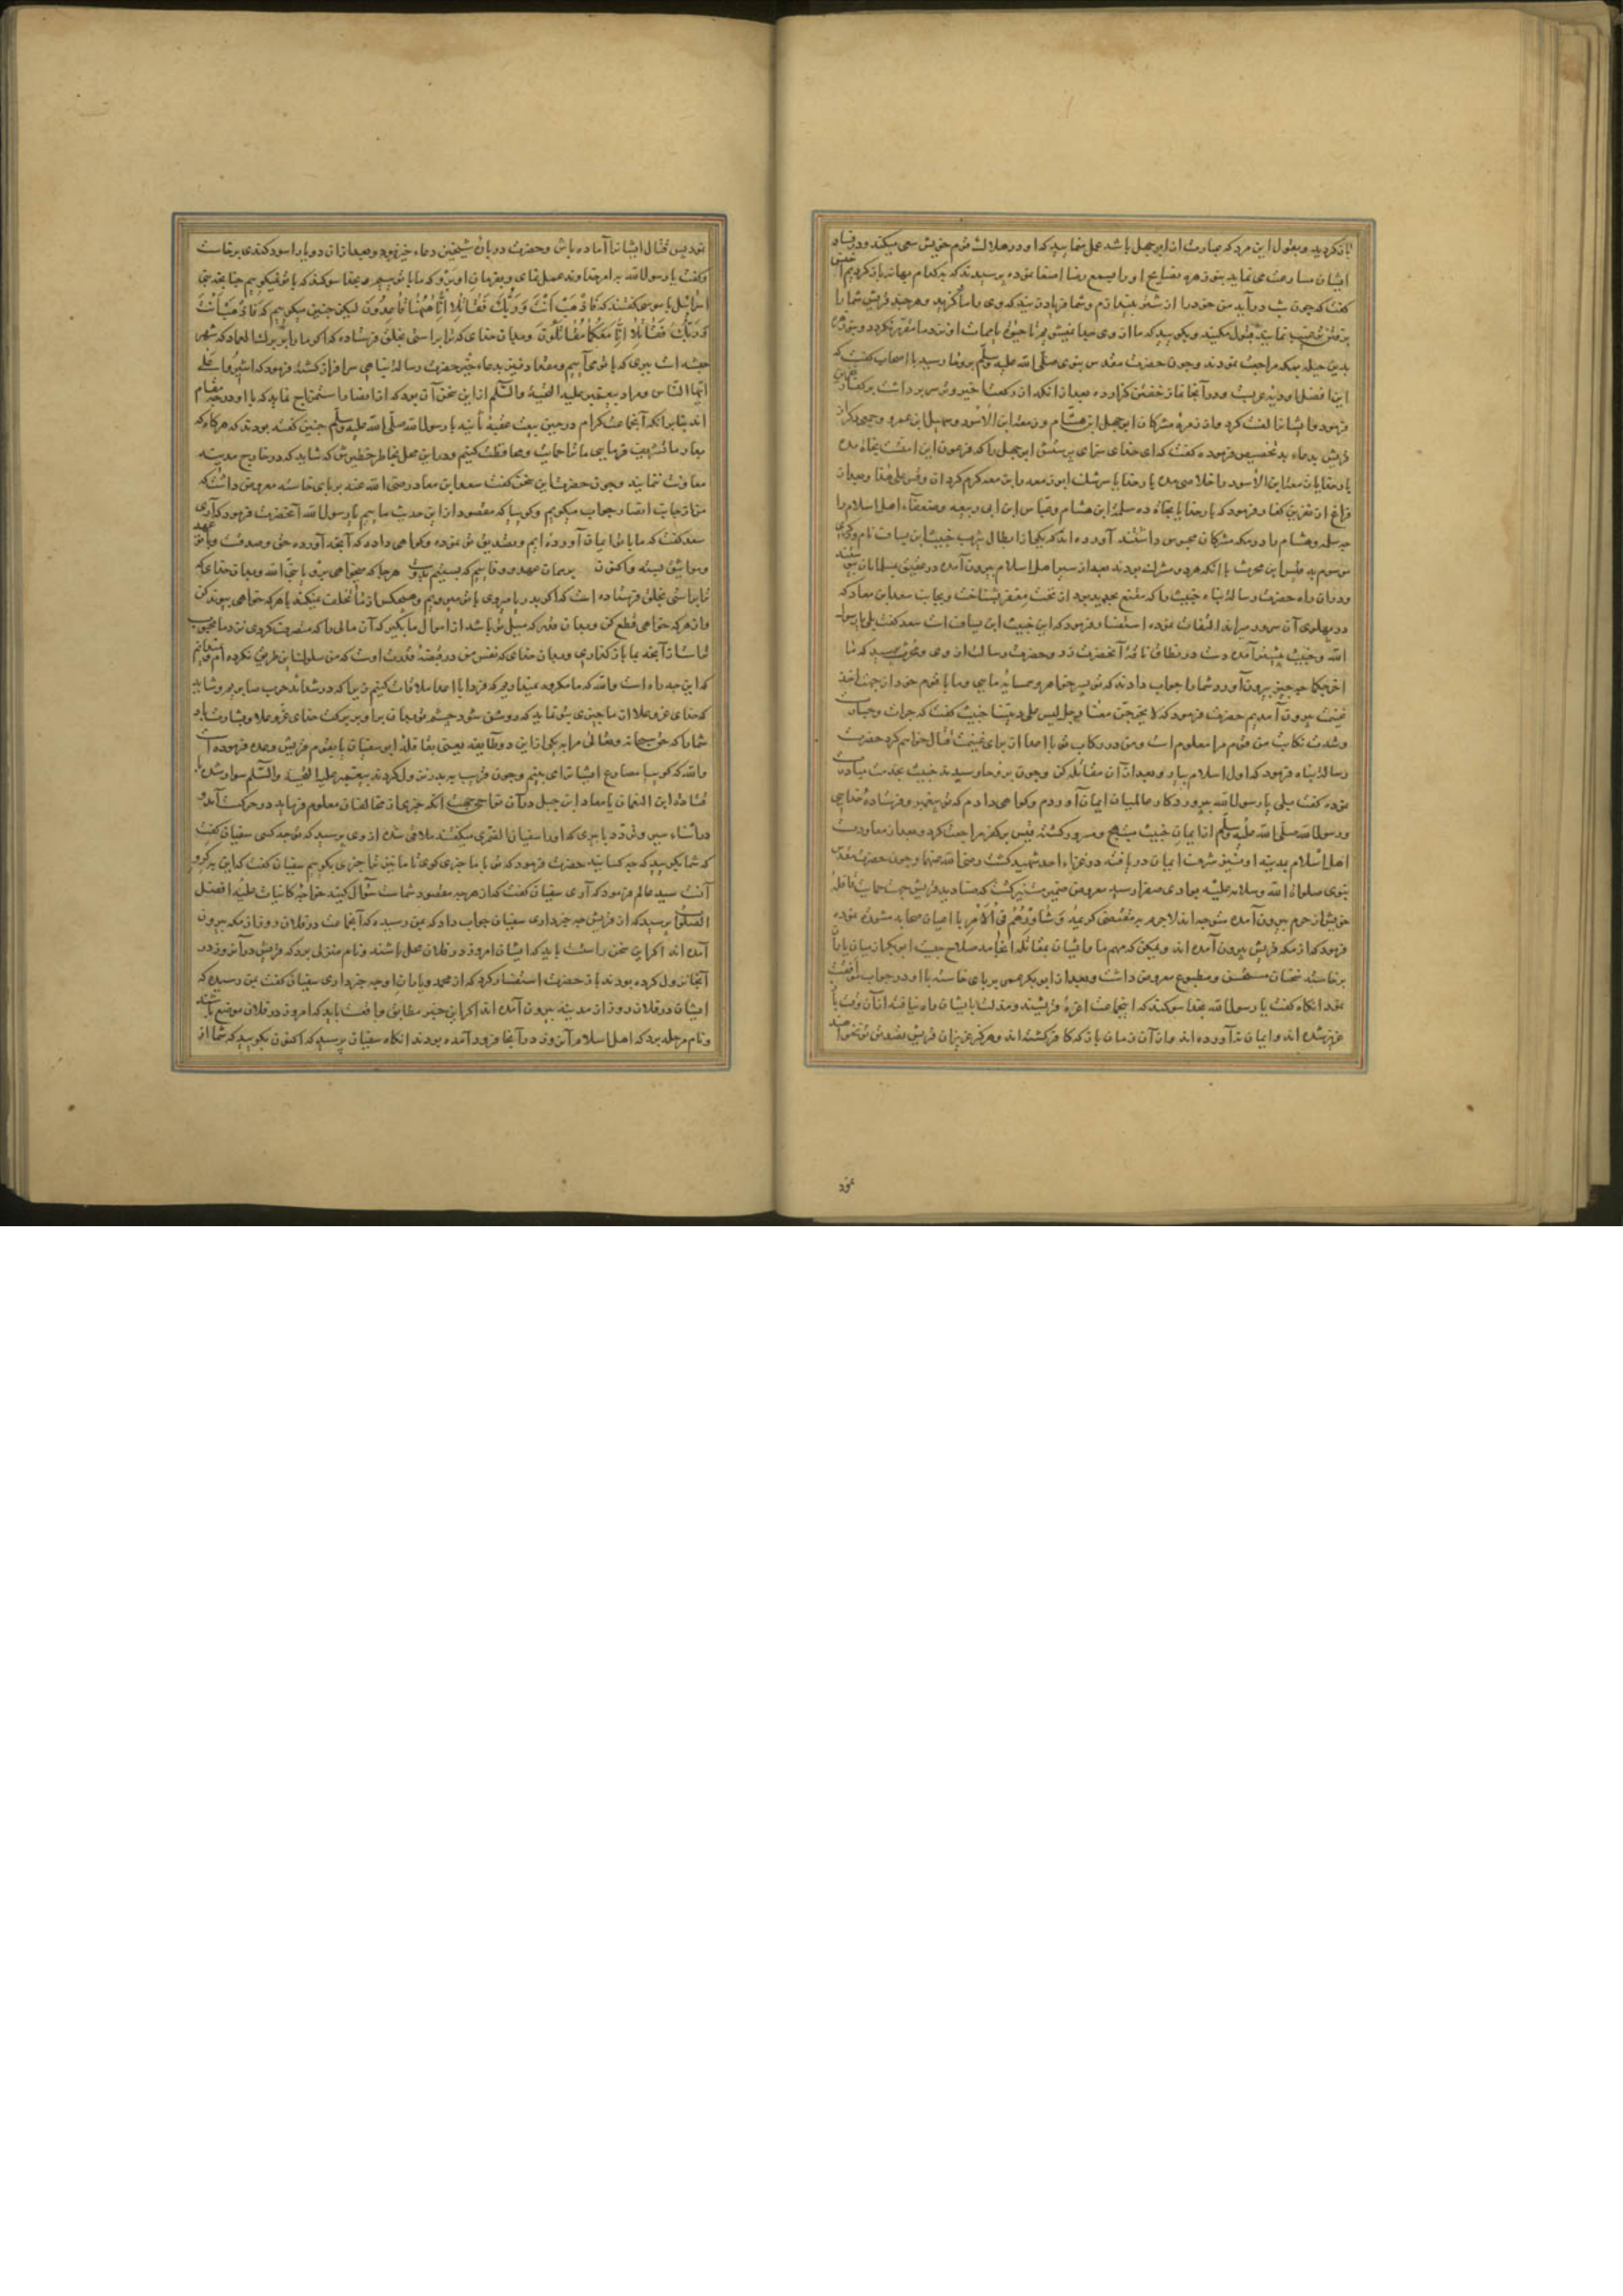 باز کردید و بقول این مرد که عبارت از ابوجهل باشد عمل منمایید که او در هلاک قوم خویش سعی میکند و در فساد
ایشان مسارعت می نماید بنو زهره نصایح او را بسمع رضا اصغا نموده پرسیدند که به کدام بهانه باز کردیم اخنس
کفت که چون شب در آید من خود را از شتر بیندازم و شما فریاد زنید که وی را مار کزید و هر چند قریش شما را
برفتن ترغیب نمایند قبول مکنید و بکویید که ما از وی جدا نمیشویم تا حیوة یا ممات او نزد ما مقرر نکردد و بنو زهره
بدین حیله بمکه مراجعت نمودند و چون حضرت مقدس نبوی صلی الله علیه وسلم بروحا رسید با اصحاب کفت که
این افضل اودیه عربست و در آنجا نماز خفتن کزارده بعد از انکه از رکعت اخیر وتر سر برداشت بر کفار نفرین
فرمود و ایشانرا لعنت کرد و از زمره مشرکان ابوجهل ابن هشام و زمعه ابن الاسود و سهیل ابن عمرو و جمعی دیگر از
قریش بدعاء بد تخصیص فرموده کفت که ای خدای سزای پرستش ابوجهل را که فرعون این امتست نجاة مده
بار خدایا زمعه ابن الاسود را خلاصی مده بار خدایا
فراغ از نفرین کفار فرمود که بار خدایا نجاة ده سلمة ابن هشام و عیاش ابن ابی ربیعه و ضعفاء اهل اسلام را
چه سلمه و هشام را در مکه مشرکان محبوس داشتند آورده اند که یکی از ابطال یثرب خبیب ابن یساف نام و دیگری
موسوم به قیس ابن محرث با انکه هر دو مشرک بودند بعد از سپاه اهل اسلام بیرون آمده در عقیق بمسلمانان پیوستند
و در آن راه حضرت رسالت پناه خبیب را که مقنع بحدید بود از تحت مغفر بشناخت و بجانب سعد ابن معاذ که
در پهلوی آن سرور میراند التفات نموده استفسار فرمود که این خبیب ابن یسافست سعد کفت بلی یا رسول
الله و خبیب پیشتر آمده دست در نطاق ناقه آنحضرت زد و حضرت رسالت از وی و پرسید که ما
اخرجکما چه چیز بیرون آورد شما را جواب دادند که تو پسر خواهر و همسایه مایی و ما با قوم خود از جهت اخذ
غنیمت بیرون آمدیم حضرت فرمود که لا یخرجن معنا رجل لیس علی دیننا خبیب کفت که جرات و جلادت
و شدت نکایت من قوم مرا معلوم است و من در رکاب تو با اعدا از برای غنیمت قتال خواهم کرد حضرت
رسالت پناه فرمود که اول اسلام بیار و بعد از آن مقاتله کن و چون بروحا رسیدند خبیب بخدمت مبادرت
نموده کفت بلی یا رسول الله بپروردکار عالمیان ایمان آوردم و کواهی دادم که تو پیغمبر و فرستاده خدایی
و رسول الله صلی الله علیه وسلم از ایمان خبیب مبتهج و مسرور کشته قیس بر کفر مراجعت کرد و بعد از معاودت
اهل اسلام بمدینه او نیز شرف ایمان دریافته در غزاء احد شهید کشت رضی الله عنهما و چون حضرت مقدس
نبوی صلواة الله وسلامه علیه بوادی صفرا رسید معروض ضمیر منیر کشت که صنادید قریش جهت حمایت قافله
خویش از حرم بیرون آمده متوجه اند لاجرم بمقتضی کریمه وَشَاوِرْهُمْ فِی الْاَمْرِ با اعیان صحابه مشورة نموده
فرمود که از مکه قریش بیرون آمده اند و ممکن که مهم ما و ایشان بمقاتله انجامد صلاح چیست ابوبکر از میان یاران
برخاسته سخنان مستحسن و مطبوع معروض داشت و بعد از ابوبکر عمر بر پای خاسته با او در جواب موافقت
نمود انکاه کفت یا رسول الله بخدا سوکند که این جماعت اعزه قریشند و مذلت بایشان راه نیافته از آن وقت باز
عزیز شده اند و ایمان نیاورده اند و از آن زمان باز که کافر کشته اند و هرکز عزیزان قریش بغرض تو نخواهند
نمود
نمود پس قتال ایشانرا آماده باش و حضرت در بارهٔ شیخین دعاء خیر فرمود و بعد از آن دو یار اسود کندی برخاست
و کفت یا رسول الله بر امر خداوند عمل نمای و بفرمان او رو که ما با تو ییم و بخدا سوکند که با تو نمیکوییم چنانچه بنی
اسرائیل با موسی کفتند که فَاذْهَبْ أَنْتَ وَرَبُّكَ فَقَاتِلَا إِنَّا هٰهُنَا قَاعِدُونَ لیکن چنین میکوییم که فَاذْهَبْ أَنْتَ
وَرَبُّكَ فَقَاتِلَا إِنَّا مَعَكُمَا مُقَاتِلُونَ و بدان خدای که ترا براستی بخلق فرستاده که اکر ما را تا برک الغماد که شهر
حبشه است ببری که با تو می آییم و مقداد نیز بدعاء خیر حضرت رسالت پناهی سرافراز کشته فرمود که اشیروا علی
ایها الناس و مراد پیغمبر علیه التحیه والسلم از این سخن آن بود که از انصار استمزاج نماید که با او در چه مقام
اند بنابر انکه آنجماعت کرام در حین بیعت عقبه ثانیه با رسول الله صلی الله علیه وسلم چنین کفته بودند که هرکاه که
بدیار ما تشریف فرمایی ما ترا حمایت و محافظت کنیم و در این محل بخاطر خطیرش که شاید که در خارج مدینه
معاونت ننمایند و چون حضرت این سخن کفت سعد ابن معاذ رضی الله عنه بر پای خاسته معروض داشت که
من از جانب انصار جواب میکویم و کوییا که مقصود از این حدیث ماییم یا رسول الله آنحضرت فرمود که آری
سعد کفت که ما با تو ایمان آورده ایم و تصدیق تو نموده و کواهی داده که آنچه آورده حق و صدقست و با تو عهد
و مواثیق بسته و اکنون بر همان عهد و وفاییم که بستیم هر جا که میخواهی برو یا نبی الله و بدان خدای که
ترا براستی بخلق فرستاده است که اکر بدریا فرو روی با تو میرویم و هیچکس از ما تخلف نمیکند با هر که خواهی پیوند کن
و از هر که خواهی قطع کن و بدان قدر که میل تو باشد از اموال ما بکیر که آن مالی را که متصرف کردی نزد ما محبوبتر
است از آنچه بما باز کذاری و بدان خدای که نفس من در قبضه قدرت اوست که من سلوک این طریق نکرده ام و نمیدانم
که این چه راه است والله که ما مکروه نمیداریم که فردا با اعدا ملاقات کنیم زیرا که در شداید حرب صابریم و شاید
که خدای عز و علا از ما چیزی بتو نماید که روشن شود چشم تو بدان بر برکت خدای عز و علا و بشارت باد
شما را که حق سبحانه و تعالی مرا به یکی از این دو طایفه یعنی بقافله ابوسفیان یا بقوم قریش وعده فرموده است
والله که کوییا مصارع ایشانرا می بینم و چون قریب به بدر نزول کردند پیغمبر علیه التحیه والسلم سوار شده با
قتادة ابن النعمان یا معاذ ابن جبل در آن نواحی جهت انکه خبری از مخالفان معلوم فرماید در حرکت آمد و
در اثناء سیر وتردد با پیری که او را سفیان الضمری میکفتند ملاقی شده از وی پرسید که تو چه کسی سفیان کفت
که شما بکویید که چه کسانید حضرت فرمود که تو با ما خبری کوی تا ما نیز ترا خبری بکوییم سفیان کفت که این به کرو
آنست سید عالم فرمود که آری سفیان کفت که از هر چه مقصود شماست سؤال کنید خواجه کاینات علیه افضل
الصلوات پرسید که از قریش چه خبر داری سفیان جواب داد که بمن رسیده که آنجماعت در فلان روز از مکه بیرون
آمده اند اکر این سخن راست باید که ایشان امروز در فلان محل باشند و نام منزلی برد که قریش در آن روز در
آنجا نزول کرده بودند باز حضرت استفسار کرد که از محمد و یاران او چه خبر داری سفیان کفت بمن رسیده که
ایشان در فلان روز از مدینه بیرون آمده اند اکر این خبر مطابق واقعست باید که امروز در فلان موضع باشند
و نام مرحله برد که اهل اسلام آن روز در آنجا فرود آمده بودند انکاه سفیان پرسید که اکنون بکویید که شما از